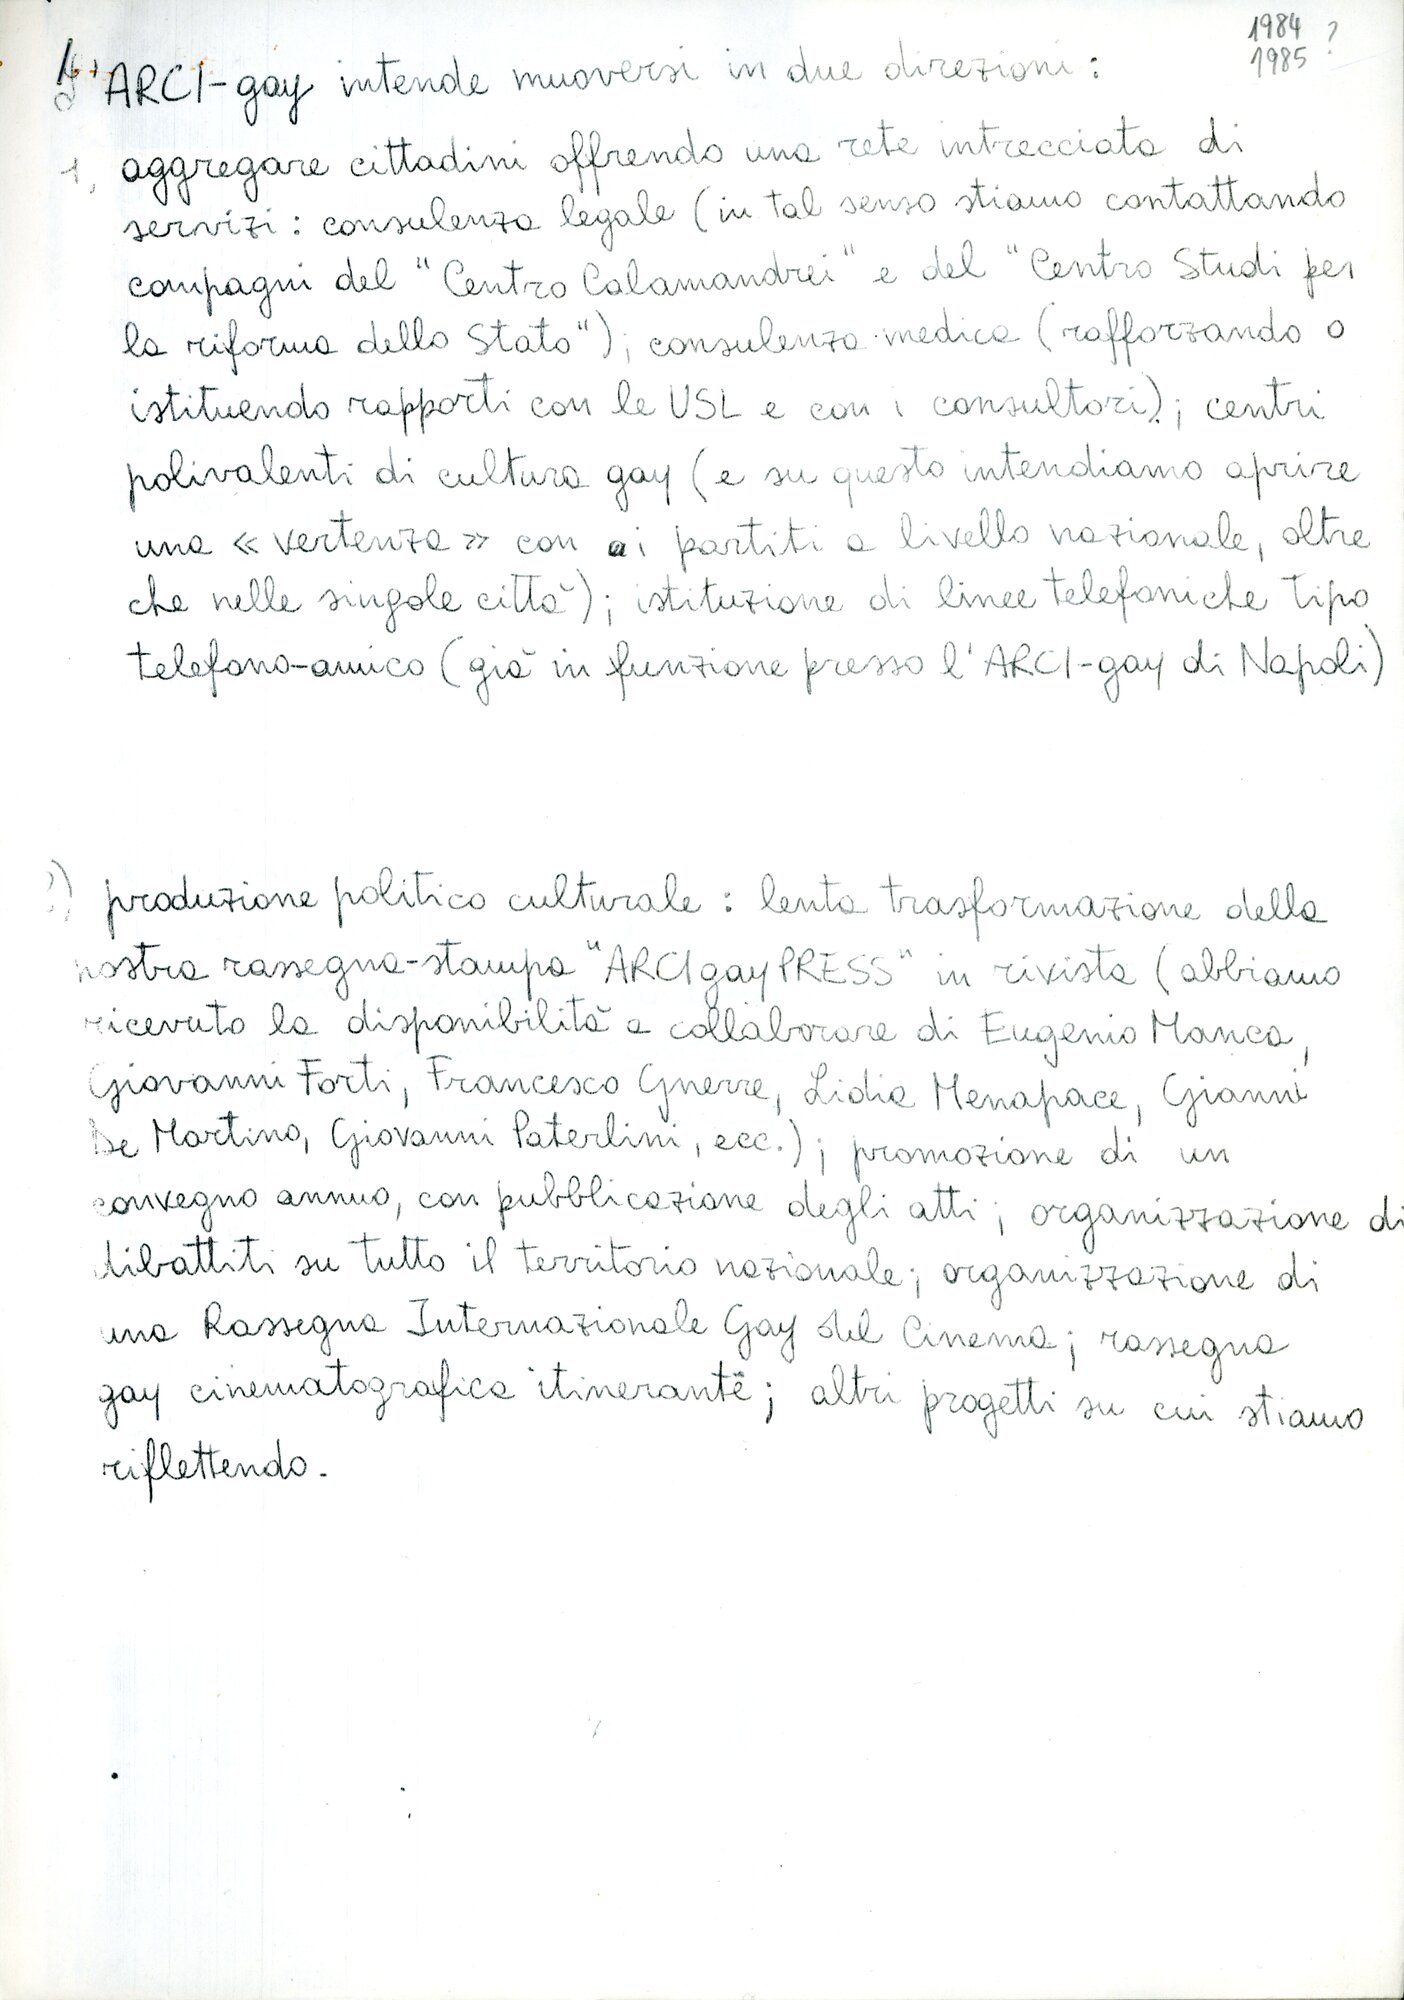 1984 ?
1985
L'ARCI-gay intende muoversi in due direzioni:
1, aggregare cittadini offrendo una rete intrecciata di
servizi: consulenza legale (in tal senso stiamo contattando
compagni del "Centro Calamandrei" e del "Centro Studi per
la riforma dello Stato"); consulenza medica (rafforzando o
istituendo rapporti con le USL e con i consultori); centri
polivalenti di cultura gay (e su questo intendiamo aprire
una «vertenza» con i partiti a livello nazionale, oltre
che nelle singole città); istituzione di linee telefoniche tipo
telefono-amico (già in funzione presso l'ARCI-gay di Napoli)
2) produzione politico culturale: lenta trasformazione della
nostra rassegna-stampa "ARCIgayPRESS" in rivista (abbiamo
ricevuto la disponibilità a collaborare di Eugenio Manca,
Giovanni Forti, Francesco Gnerre, Lidia Menapace, Gianni
De Martino, Giovanni Paterlini, ecc.); promozione di un
convegno annuo, con pubblicazione degli atti; organizzazione di
dibattiti su tutto il territorio nazionale; organizzazione di
una Rassegna Internazionale Gay del Cinema; rassegna
gay cinematografica itinerante; altri progetti su cui stiamo
riflettendo.